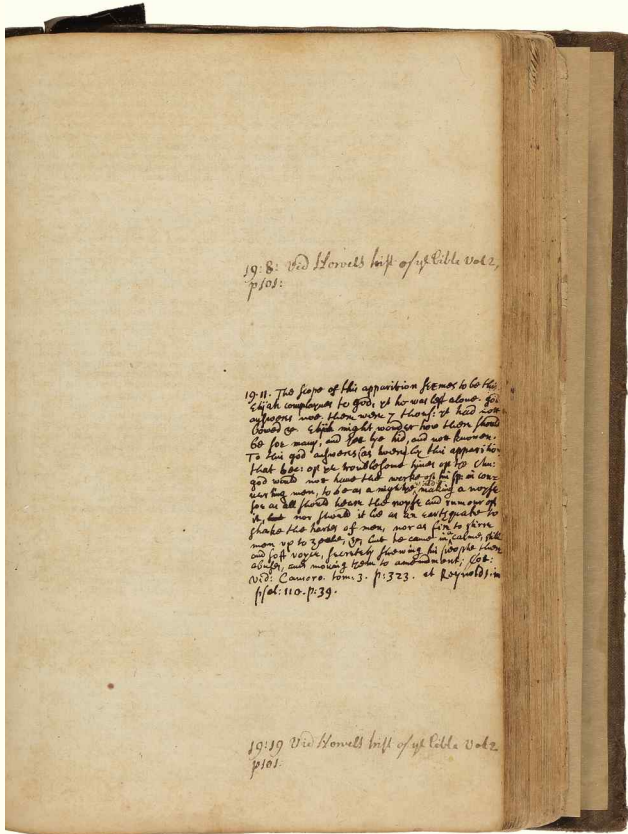 19:8: Vid Howels hist of ye Bible Vol 2,
p101:
19.11. The scope of this apparition seemes to be this
Elijah complaynes to god, yt he was left alone. god
answers noe there were 7 thous: yt had not
bowed &. Elijah might wonder how there should
be soe many, and yet lye hid, and not knowen.
To this god answers (as it were) by this apparition
that bec: of ye troublesome times of ye
god would not have the worke of his sp: in con:
verting men, to be as a mighty wind, making a noyse
soe as all should heare the noyse and rumour of
it, nor should it be as an earthquake to
shake the hartes of men, nor as fire to stirre
men up to zeale, but he came in a calme, still
and soft voyce, secretly shewing his people their
abuses, and moving them to amendment;
vid: Camero. tom: 3. p: 323. et Reynolds in
psal: 110. p: 39.
19:19 Vid Howels hist of ye Bible Vol 2
p101: